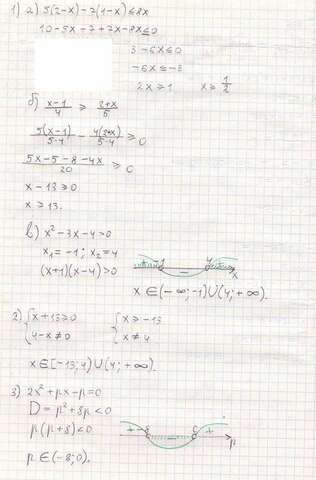 1) а) 5(2-x)-7(1-x)≤8x
10-5x-7+7x-8x≤0
3-6x≤0
-6x≤-3
2x≥1   x≥1/2
б) (x-1)/4 ≥ (2+x)/5
5(x-1)/(5·4) - 4(2+x)/(5·4) ≥0
(5x-5-8-4x)/20 ≥0
x-13≥0
x≥13.
в) x²-3x-4>0
x₁=-1; x₂=4
(x+1)(x-4)>0
-1 - 4 x
x∈(-∞;-1)∪(4;+∞).
2) {x+13≥0   {x≥-13
4-x≠0   x≠4
x∈[-13;4)∪(4;+∞).
3) 2x²+px-p=0
D=p²+8p<0
p(p+8)<0
+ - + p
p∈(-8;0).